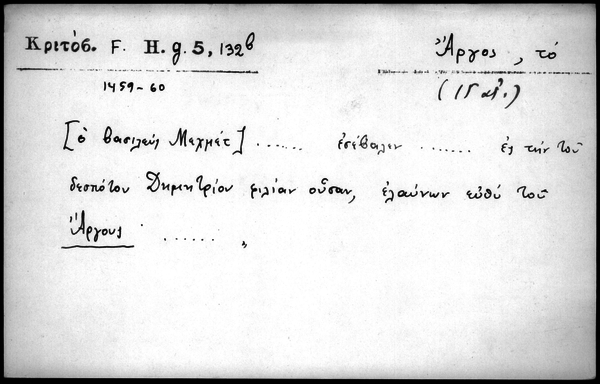 Κριτόβ. F. H. g. 5, 132b
Ἄργος, τό
1459-60
(15 αἰ.)
[ὁ βασιλεὺς Μεχμέτ] ...... ἐσέβαλεν ...... ἐς τὴν τοῦ
δεσπότου Δημητρίου φιλίαν οὖσαν, ἐλαύνων εὐθὺ τοῦ
Ἄργους ...... „